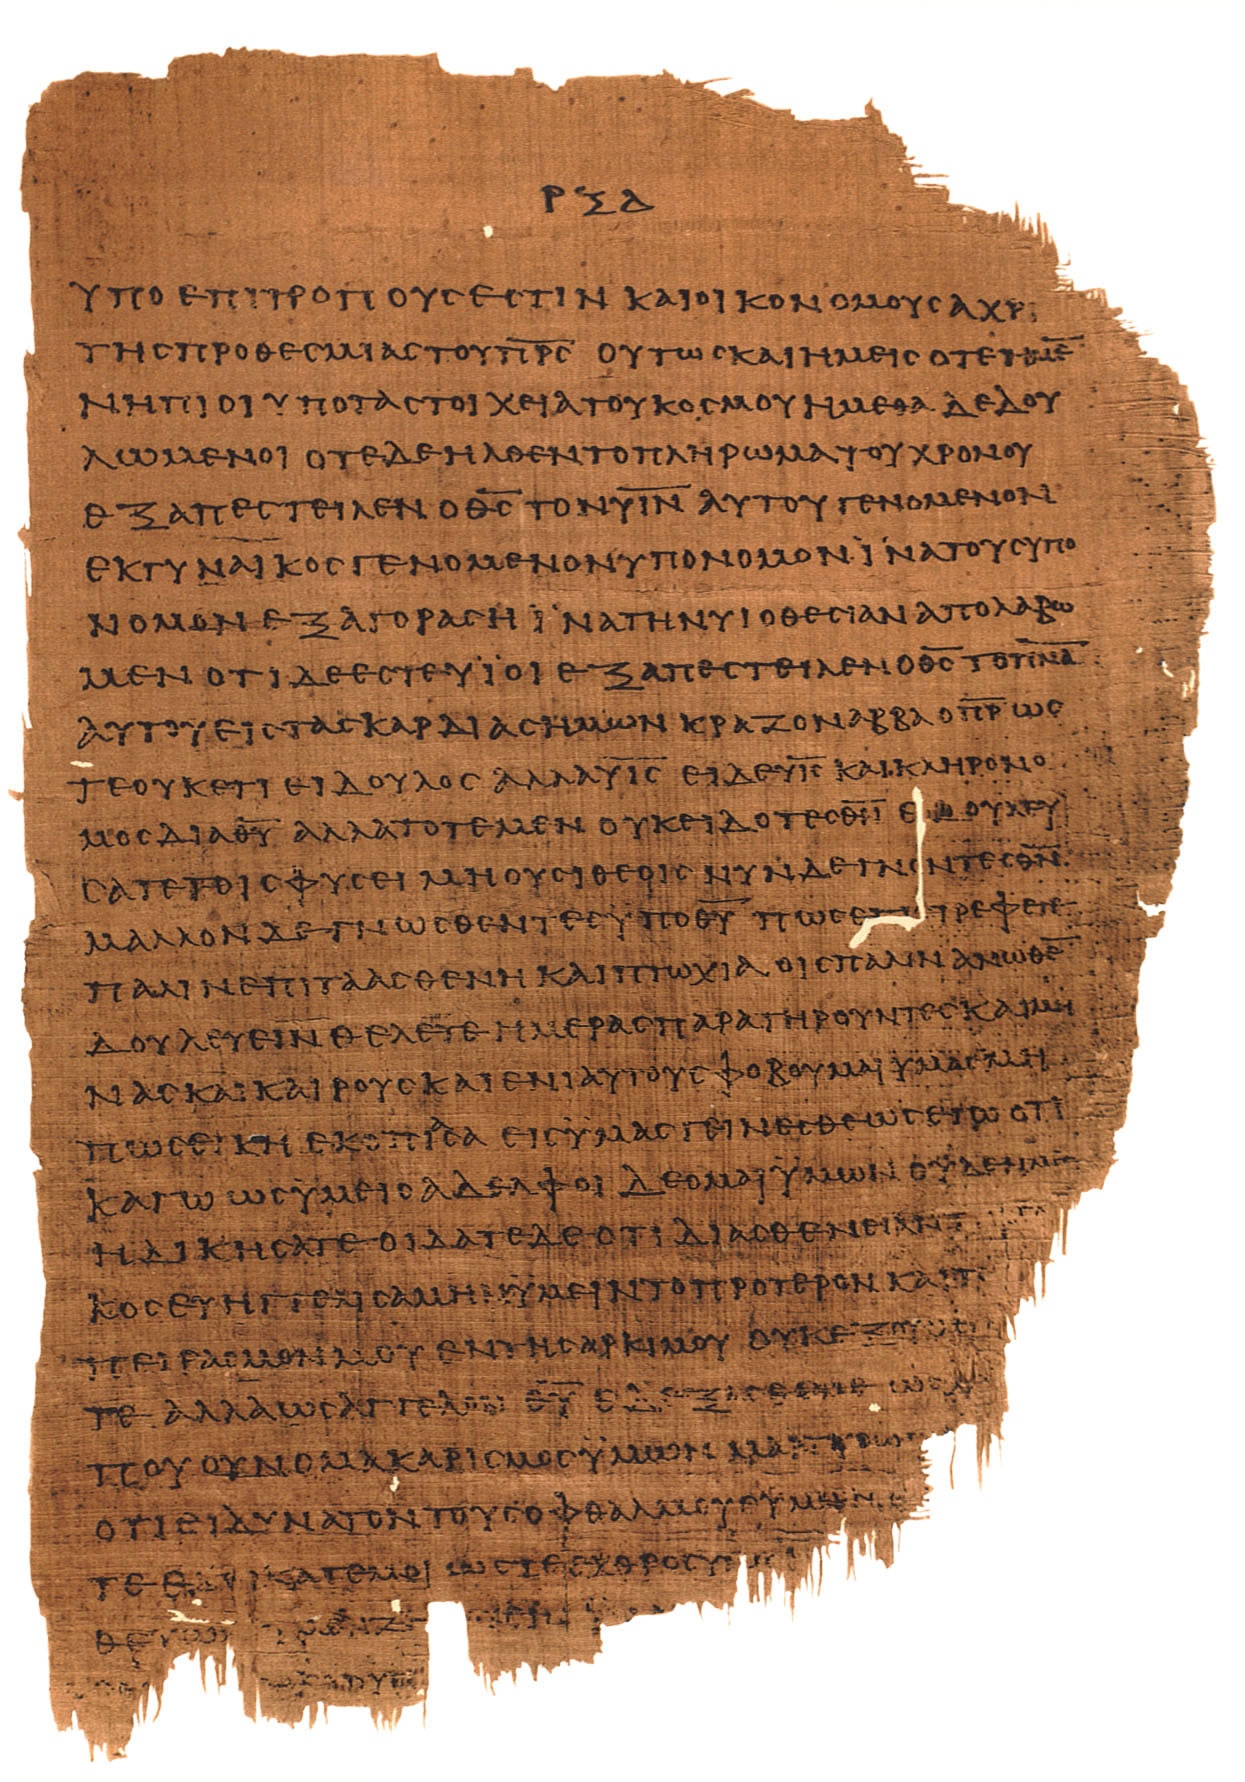 ΡΞΔ
ΥΠΟ ΕΠΙΤΡΟΠΟΥΣ ΕΣΤΙΝ ΚΑΙ ΟΙΚΟΝΟΜΟΥΣ ΑΧΡΙ
ΤΗΣ ΠΡΟΘΕΣΜΙΑΣ ΤΟΥ Π̅Ρ̅Σ̅ ΟΥΤΩΣ ΚΑΙ ΗΜΕΙΣ ΟΤΕ ΗΜΕ̅
ΝΗΠΙΟΙ ΥΠΟ ΤΑ ΣΤΟΙΧΕΙΑ ΤΟΥ ΚΟΣΜΟΥ ΗΜΕΘΑ ΔΕΔΟΥ
ΛΩΜΕΝΟΙ ΟΤΕ ΔΕ ΗΛΘΕΝ ΤΟ ΠΛΗΡΩΜΑ ΤΟΥ ΧΡΟΝΟΥ
ΕΞΑΠΕΣΤΕΙΛΕΝ Ο Θ̅Σ̅ ΤΟΝ Υ̅Ι̅Ν̅ ΑΥΤΟΥ ΓΕΝΟΜΕΝΟΝ
ΕΚ ΓΥΝΑΙΚΟΣ ΓΕΝΟΜΕΝΟΝ ΥΠΟ ΝΟΜΟΝ ΪΝΑ ΤΟΥΣ ΥΠΟ
ΝΟΜΟΝ ΕΞΑΓΟΡΑΣΗ ΪΝΑ ΤΗΝ ΥΙΟΘΕΣΙΑΝ ΑΠΟΛΑΒΩ
ΜΕΝ ΟΤΙ ΔΕ ΕΣΤΕ ΥΪΟΙ ΕΞΑΠΕΣΤΕΙΛΕΝ Ο Θ̅Σ̅ ΤΟ Π̅Ν̅Α̅
ΑΥΤΟΥ ΕΙΣ ΤΑΣ ΚΑΡΔΙΑΣ ΗΜΩΝ ΚΡΑΖΟΝ ΑΒΒΑ Ο Π̅Ρ̅ ΩΣ
ΤΕ ΟΥΚΕΤΙ ΕΙ ΔΟΥΛΟΣ ΑΛΛΑ Υ̅Ι̅Σ̅ ΕΙ ΔΕ Υ̅Ι̅Σ̅ ΚΑΙ ΚΛΗΡΟΝΟ
ΜΟΣ ΔΙΑ Θ̅Υ̅ ΑΛΛΑ ΤΟΤΕ ΜΕΝ ΟΥΚ ΕΙΔΟΤΕΣ Θ̅Ν̅ ΕΔΟΥΛΕΥ
ΣΑΤΕ ΤΟΙΣ ΦΥΣΕΙ ΜΗ ΟΥΣΙ ΘΕΟΙΣ ΝΥΝ ΔΕ ΓΝΟΝΤΕΣ Θ̅Ν̅
ΜΑΛΛΟΝ ΔΕ ΓΝΩΣΘΕΝΤΕΣ ΫΠΟ Θ̅Υ̅ ΠΩΣ ΕΠΙΣΤΡΕΦΕΤΕ
ΠΑΛΙΝ ΕΠΙ ΤΑ ΑΣΘΕΝΗ ΚΑΙ ΠΤΩΧΙΑ ΟΙΣ ΠΑΛΙΝ ΑΝΩΘΕ̅
ΔΟΥΛΕΥΕΙΝ ΘΕΛΕΤΕ ΗΜΕΡΑΣ ΠΑΡΑΤΗΡΟΥΝΤΕΣ ΚΑΙ ΜΗ
ΝΑΣ ΚΑΙ ΚΑΙΡΟΥΣ ΚΑΙ ΕΝΙΑΥΤΟΥΣ ΦΟΒΟΥΜΑΙ ΥΜΑΣ ΜΗ
ΠΩΣ ΕΙΚΗ ΕΚΟΠΙΑΣΑ ΕΙΣ ΫΜΑΣ ΓΕΙΝΕΣΘΕ ΩΣ ΕΓΩ ΟΤΙ
ΚΑΓΩ ΩΣ ΫΜΕΙΣ ΑΔΕΛΦΟΙ ΔΕΟΜΑΙ ΫΜΩΝ ΟΥΔΕΝ ΜΕ
ΗΔΙΚΗΣΑΤΕ ΟΙΔΑΤΕ ΔΕ ΟΤΙ ΔΙ ΑΣΘΕΝΕΙΑΝ
ΚΟΣ ΕΥΗΓΓΕΛΙΣΑΜΗΝ ΫΜΕΙΝ ΤΟ ΠΡΟΤΕΡΟΝ ΚΑΙ Τ
ΠΕΙΡΑΣΜΟΝ ΜΟΥ ΕΝ ΤΗ ΣΑΡΚΙ ΜΟΥ ΟΥΚ ΕΞΟΥ
ΤΕ ΑΛΛΑ ΩΣ ΑΓΓΕΛΟΝ Θ̅Υ̅ ΕΔΕΞΑΣΘΕ ΜΕ ΩΣ
ΠΟΥ ΟΥΝ Ο ΜΑΚΑΡΙΣΜΟΣ ΫΜΩΝ ΜΑΡΤΥΡΩ
ΟΤΙ ΕΙ ΔΥΝΑΤΟΝ ΤΟΥΣ ΟΦΘΑΛΜΟΥΣ ΫΜΩΝ
ΤΕ ΕΔΩΚΑΤΕ ΜΟΙ ΩΣΤΕ ΕΧΘΡΟΣ Υ